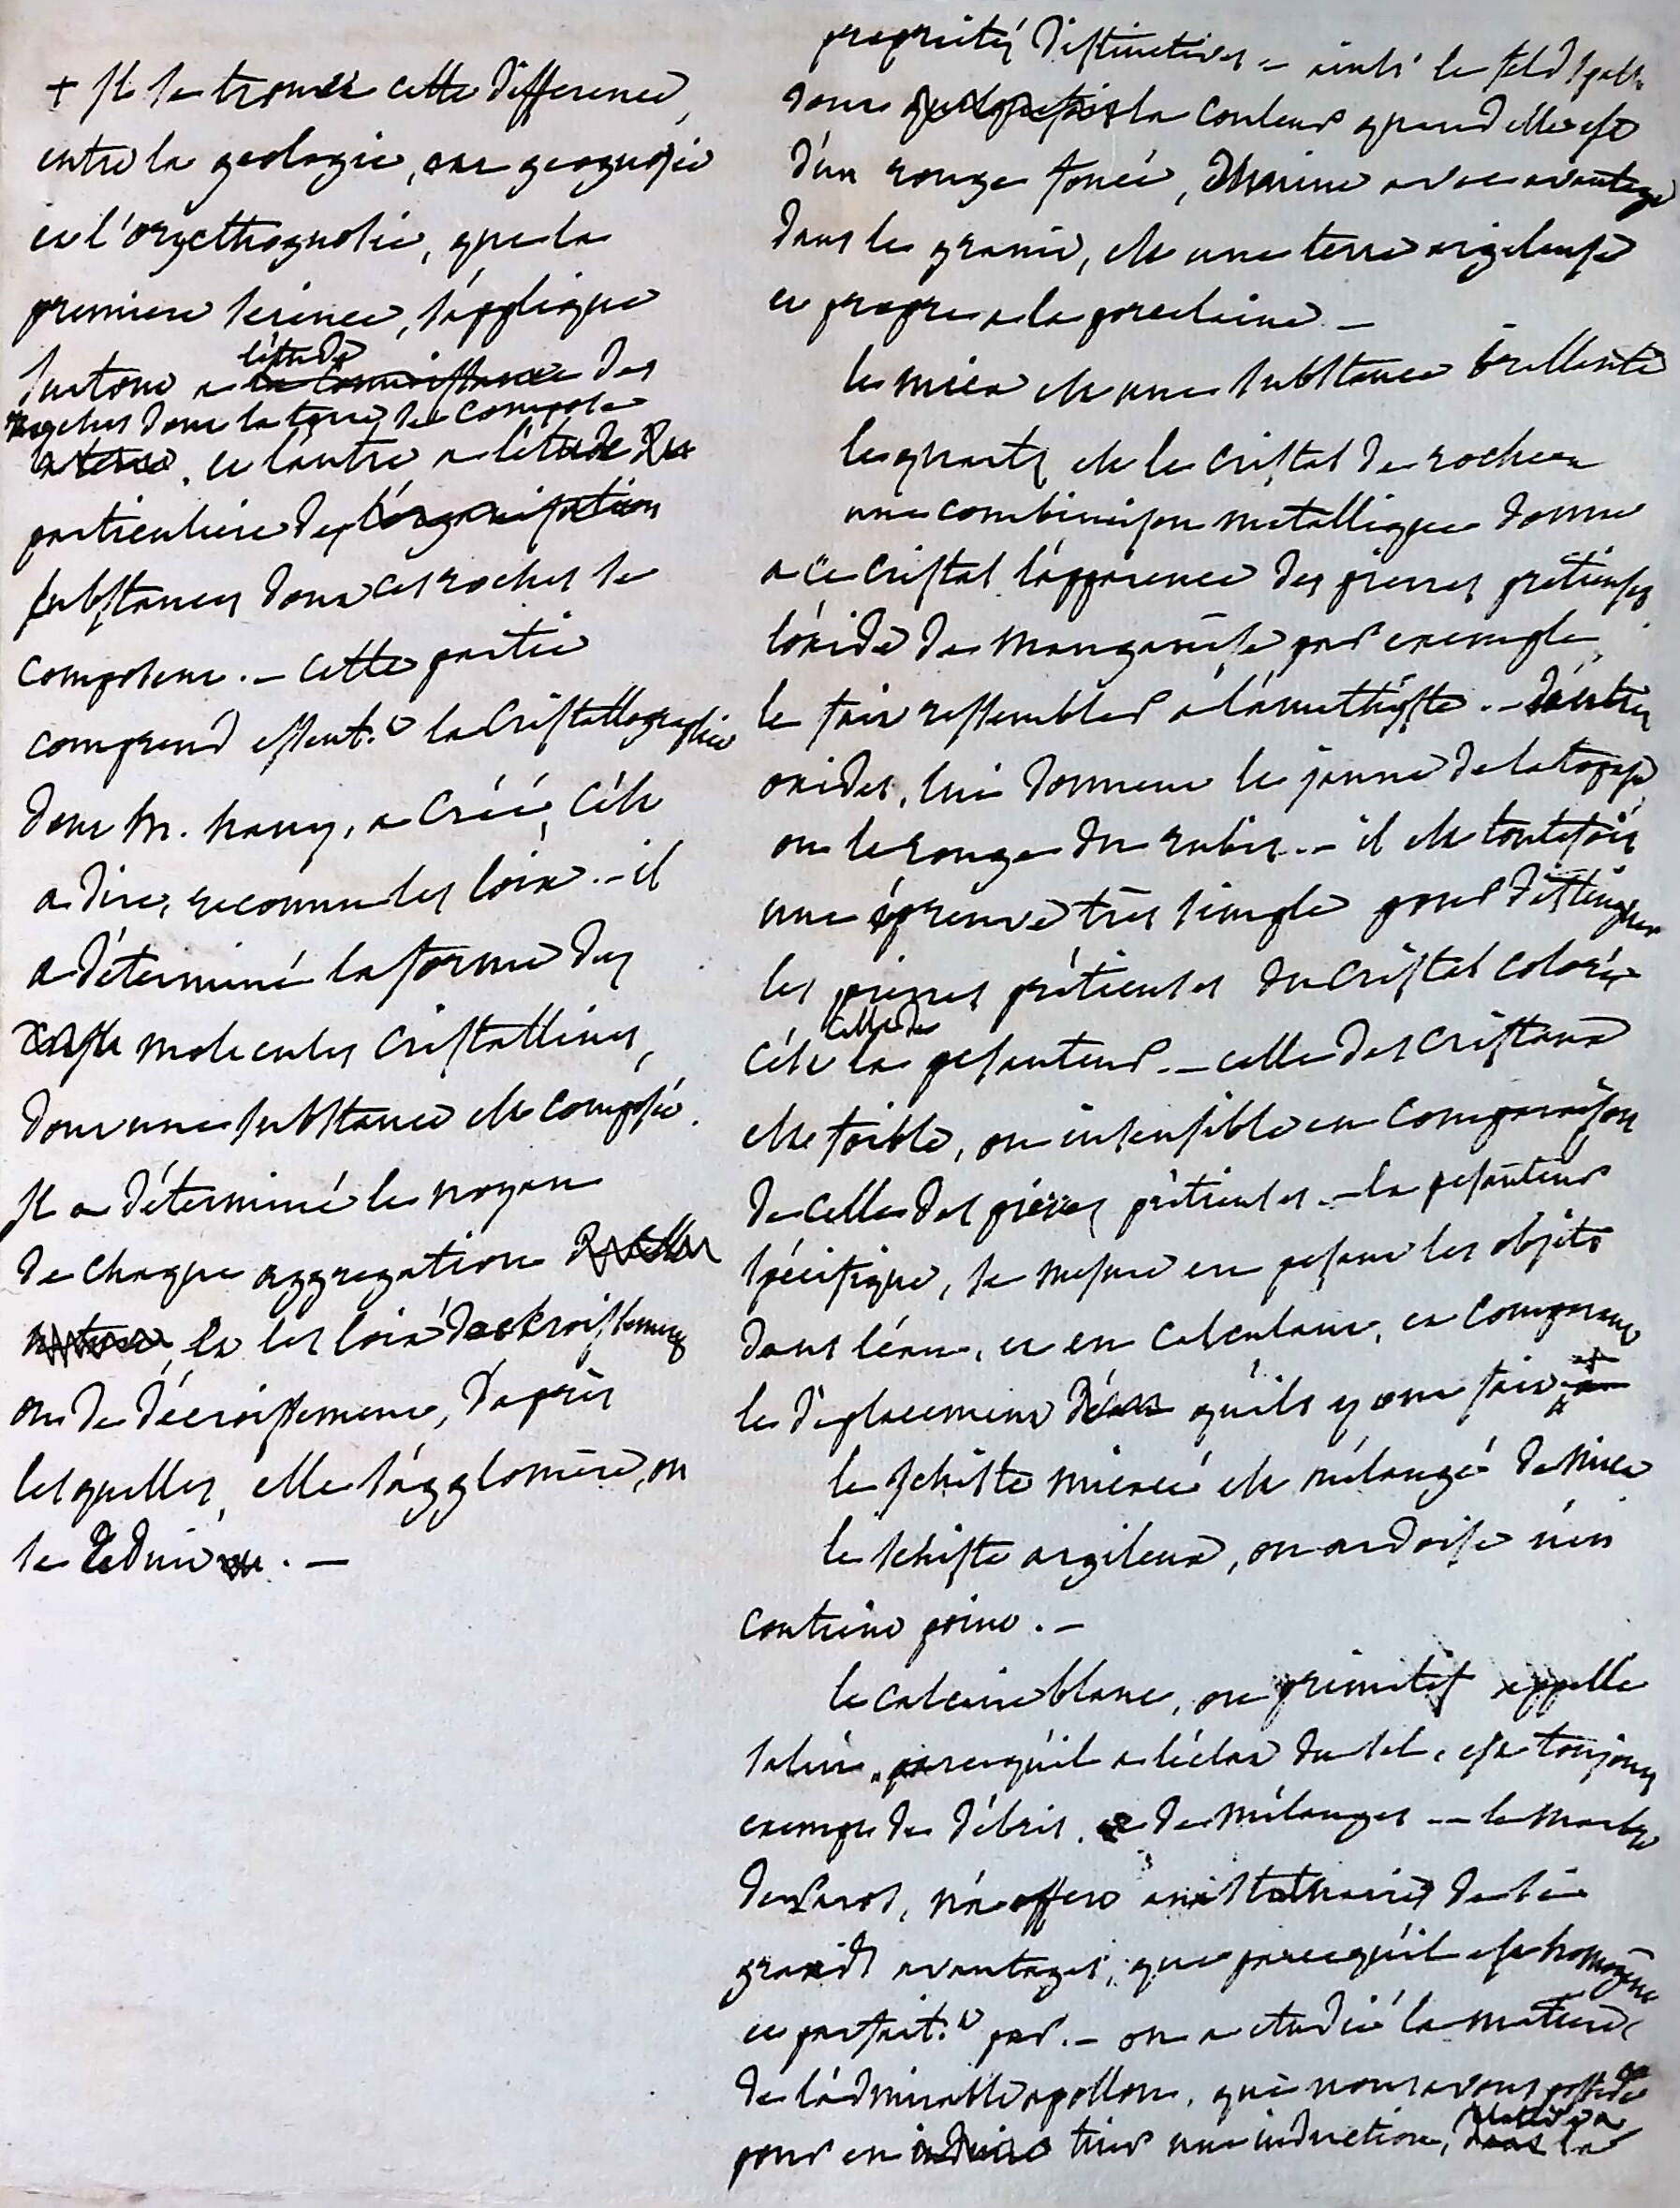 + Il se trouve cette différence,
entre la geologie, ou geognosie
et l'oryctognosie, que la
premiere science, s'applique
l'étude
surtout a la connoissance des
roches dont la terre se compose
la terre. et l'autre a l'étude
particuliere des l'organisation
substances dont ces roches se
composent. – cette partie
comprend essent.t la Cristallographie
dont M. hauy, a Créé, c'est
a dire, reconnu les loix. – il
a déterminé la forme des
molecules Cristallines,
dont une substance est composée.
Il a déterminé le noyau
de chaque aggregation
et les loix d'accroissement
ou de décroissement, d'après
lesquelles, elle s'agglomère, ou
se réduit. –
proprietés distinctives – ainsi le feld spath
dont quelquefois la couleur quand elle est
d'un rouge foncé, domine avec avantage
dans le granit, est une terre argileuse
et propre a la porcelaine –
le mica est une substance brillante
le quartz est le cristal de roche
une combinaison metallique donne
a ce cristal l'apparence des pierres prétieuses
l'oxide de manganèse par exemple,
le fait ressembler a l'amethyste. – d'autres
oxides, lui donnent le jaune de la topaze
ou le rouge du rubis. – il est toutefois
une épreuve très simple pour distinguer
les pierres prétieuses du cristal coloré
celle de
c'est la pesanteur. – celle des cristaux
est foible, ou insensible en comparaison
de celle des pierres prétieuses. – la pesanteur
spécifique, se mesure en pesant les objets
dans l'eau, et en calculant, et comparant
le déplacement d'eau qu'ils y ont fait
le schiste micacé est mélangé de mica
le schiste argileux, ou ardoise n'en
contient point. –
le calcaire blanc, ou primitif appellé
salin, parcequ'il a l'éclat du sel, est toujours
exempt de débris, et de mélanges – le marbre
de Paros, n'a offert aux statuaires de si
grands avantages, que parcequ'il est homogène
et parfait.t pur. – on a etudié la matiere
de l'admirable apollon, que nous avons possédé
relative a
pour en induire tirer une induction, dans la